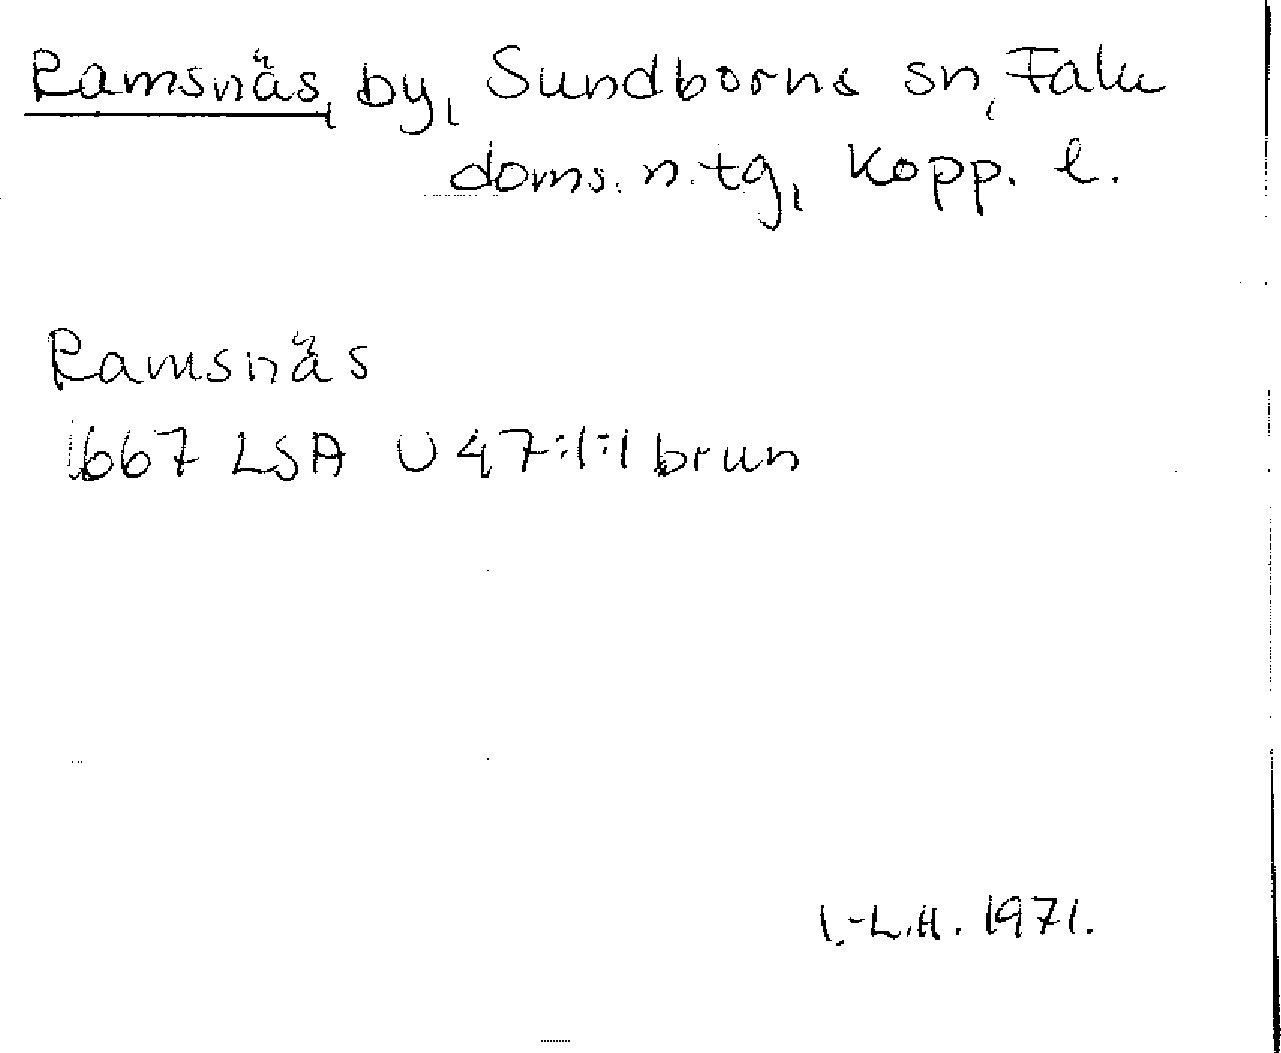 Ramsnäs, by, Sundborns sn, Falu
doms. n. tg, Kopp. l.
Ramsnäs
1667 LSA U 47:1:1 brun
I.-L.H. 1971.